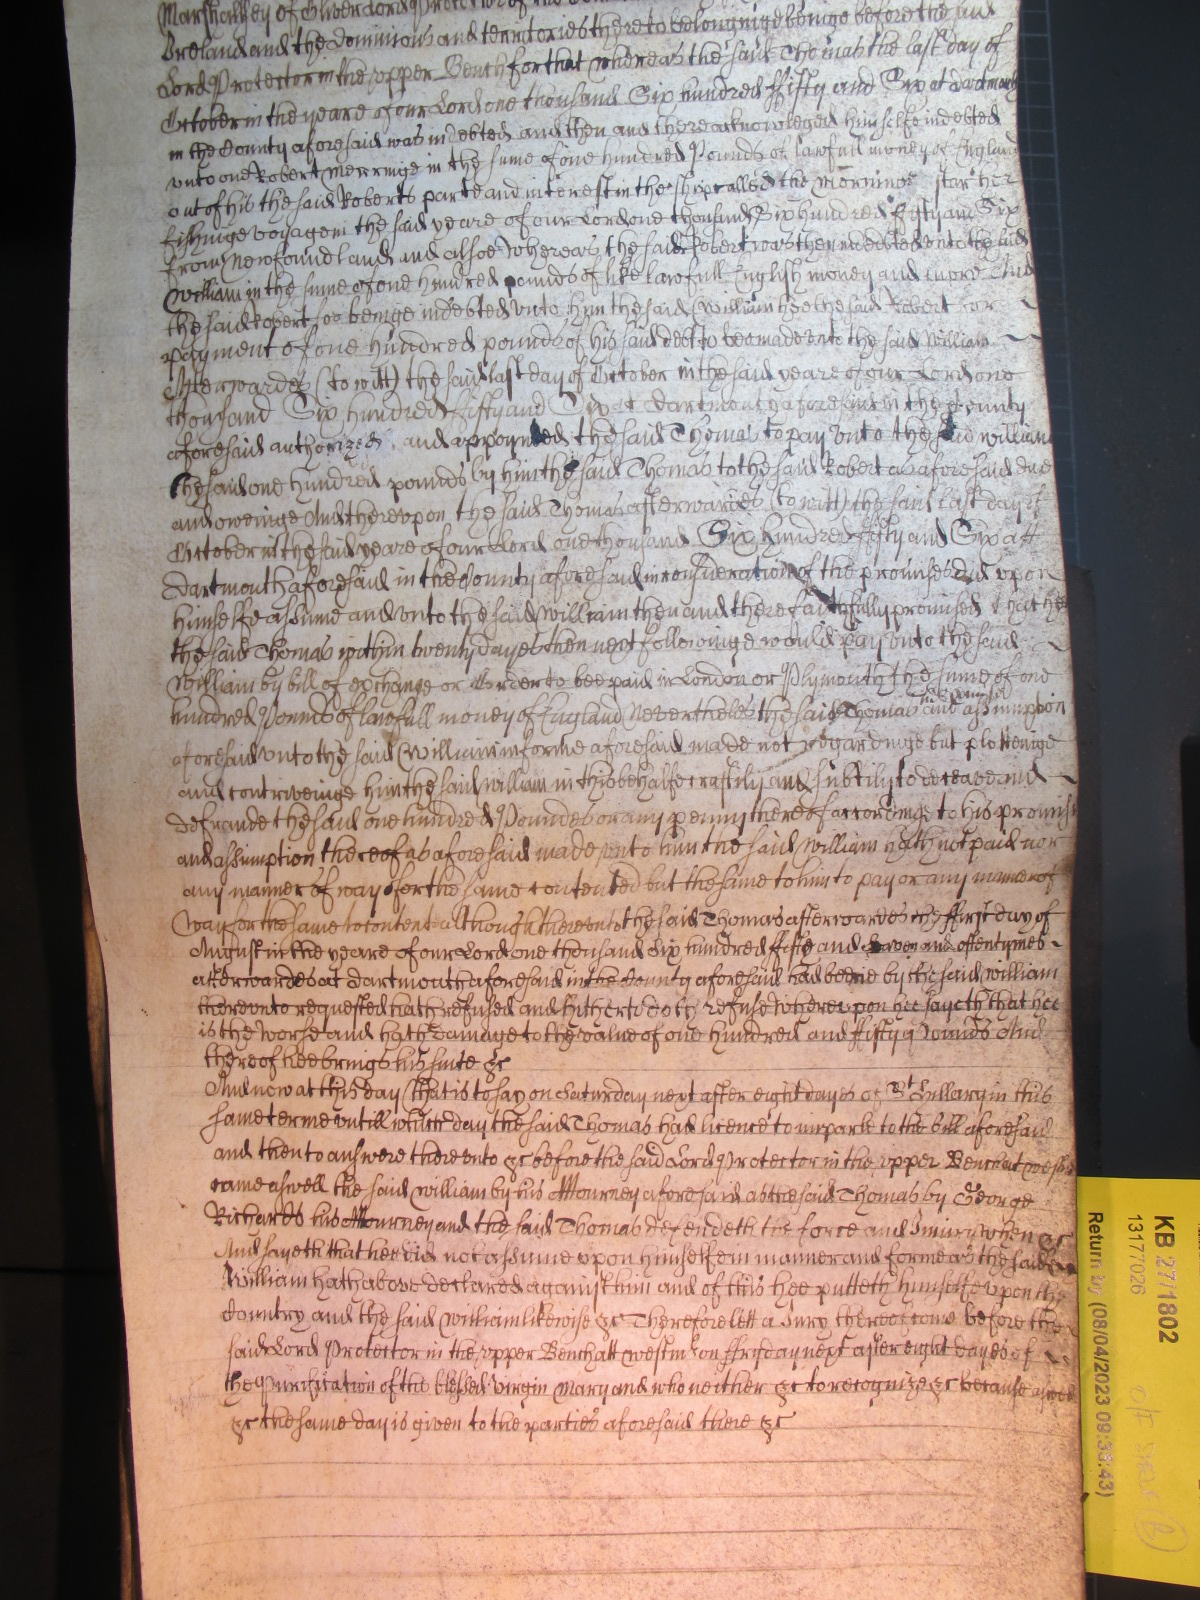 Marshallsey of Oliver Lord Protector of the
Ireland and the dominions and territories thereto belonginge beinge before the said
Lord Protector in the upper Bench for that whereas the said Thomas the last day of
October in the yeare of our Lord one thousand Six hundred ffifty and Six at dartmouth
in the County aforesaid was indebted and then and there acknowleged himselfe indebted
unto one Robert Merringe in the sume of one hundred Pounds of lawfull money of England
out of his the said Roberts parte and interest in the shipe called the Morninge starr her
fishinge voyage in the said yeare of our Lord one thousand Six hundred ffifty and Six
from Newfoundland and alsoe whereas the said Robert was then indebted unto the said
William in the sume of one hundred pounds of like lawfull English money and more And
the said Robert soe beinge indebted unto him the said William hee the said Robert for
payment of one hundred pounds of his said debt to bee made unto the said William
Afterwardes (to witt) the said last day of October in the said yeare of our Lord one
thousand Six hundred ffifty and Six at dartmouth aforesaid in the County
aforesaid authorized and appoynted the said Thomas to pay unto the said William
the said one hundred pounds by him the said Thomas to the said Robert as aforesaid due
and oweinge And thereupon the said Thomas afterwardes (to witt) the said last day of
October in the said yeare of our Lord one thousand Six hundred ffifty and Six att
dartmouth aforesaid in the County aforesaid in consideration of the premises did upon
himselfe assume and unto the said William then and there faithfully promised that hee
the said Thomas within twenty dayes then next followinge would pay unto the said
William by bill of exchange or Order to bee paid in London or Plymouth the sume of one
hundred Pounds of lawfull money of England Neverthelesse the said Thomas his promise and assumption
aforesaid unto the said William in forme aforesaid made not regardinge but plotteinge
and contriveinge him the said William in this behalfe craftily and subtily to deceave and
defraude the said one hundred Poundes or any penny thereof accordinge to his promise
and assumption thereof as aforesaid made unto him the said William hath not paid nor
any manner of way for the same contented but the same to him to pay or any manner of
way for the same to content although thereunto the said Thomas afterwardes the ffirst day of
August in the yeare of our Lord one thousand Six hundred ffifty and Seaven and oftentymes
afterwardes at dartmouth aforesaid in the County aforesaid had beene by the said William
thereunto requested hath refused and hitherto doth refuse whereupon hee sayeth that hee
is the worse and hath damage to the value of one hundred and ffifty Pounds And
thereof hee brings his suite &c
And now at this day that is to say on Saturday next after eight dayes of St Hillary in this
same terme untill which day the said Thomas had licence to imparle to the bill aforesaid
and then to answere thereunto &c before the said Lord Protector in the upper Bench at westm
came aswell the said William by his Attourney aforesaid as the said Thomas by George
Richards his Attourney and the said Thomas defendeth the force and Iniury when &c
And sayeth that hee did not assume upon himselfe in manner and forme as the said
William hath above declared against him and of this hee putteth himselfe upon the
Country and the said William likewise &c Therefore lett a Jury thereof come before the
said Lord Protector in the upper Bench att westm on ffryday next after eight dayes of
the Purification of the blessed virgin Mary and who neither &c to recognize &c because aswell
&c the same day is given to the parties aforesaid there &c
KB 271802
13177026
Return by (08/04/2023 09:33:43)